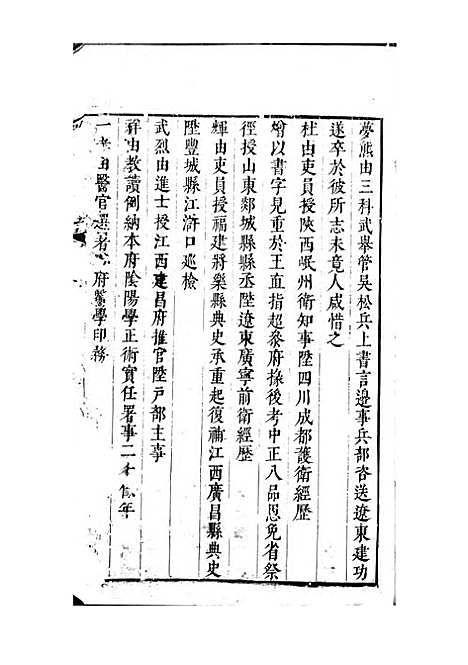 夢熊由三科武舉管吳松兵上書言邊事兵部咨送遼東建功
遂卒於彼所志未竟人咸惜之
杜由吏員授陝西岷州衛知事陞四川成都護衛經歷
繪以書字見重於王直指超叅府掾後考中正八品恩免省祭
徑授山東郯城縣縣丞陞遼東廣寧前衛經歷
輝由吏員授福建將樂縣典史承重起復補江西廣昌縣典史
陞豐城縣江滸口巡檢
武烈由進士授江西建昌府推官陞戸部主事
祥由教讀例納本府陰陽學正術實任署事二十年
一 由醫官選署 府醫學印務